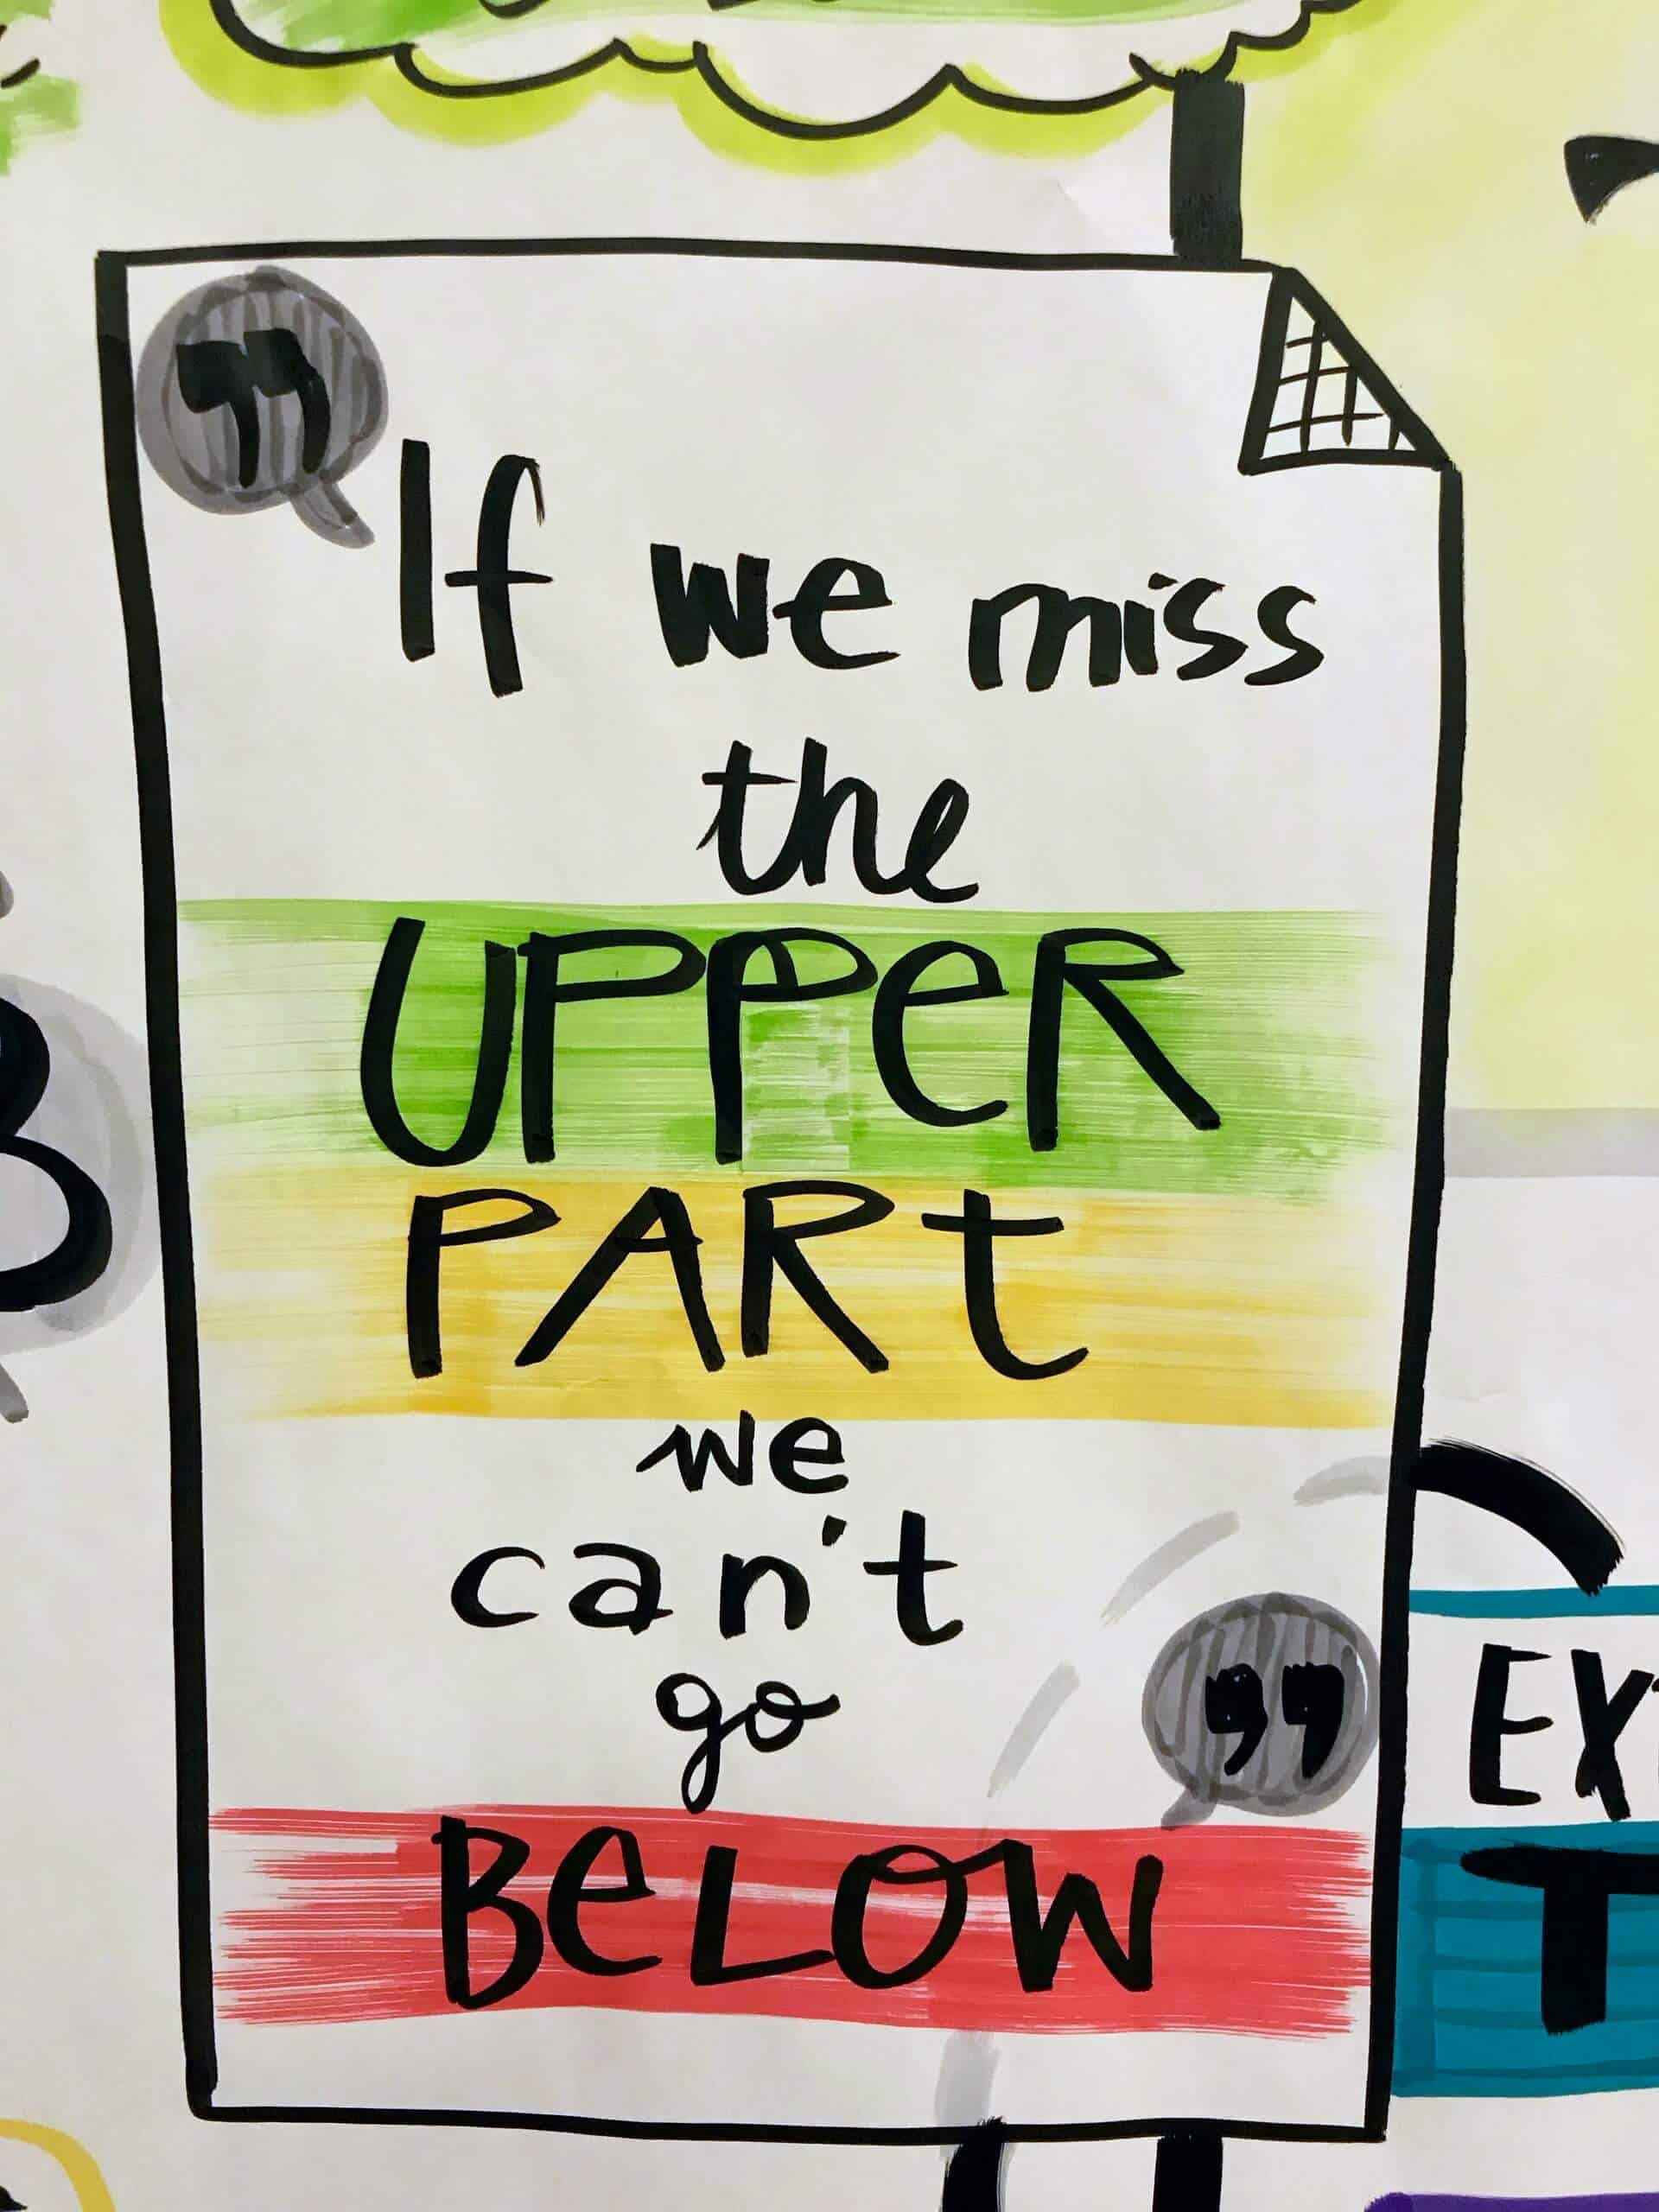 " If we miss
the
UPPeR
PARt
we
can't
go
BeLOW "
EX
T